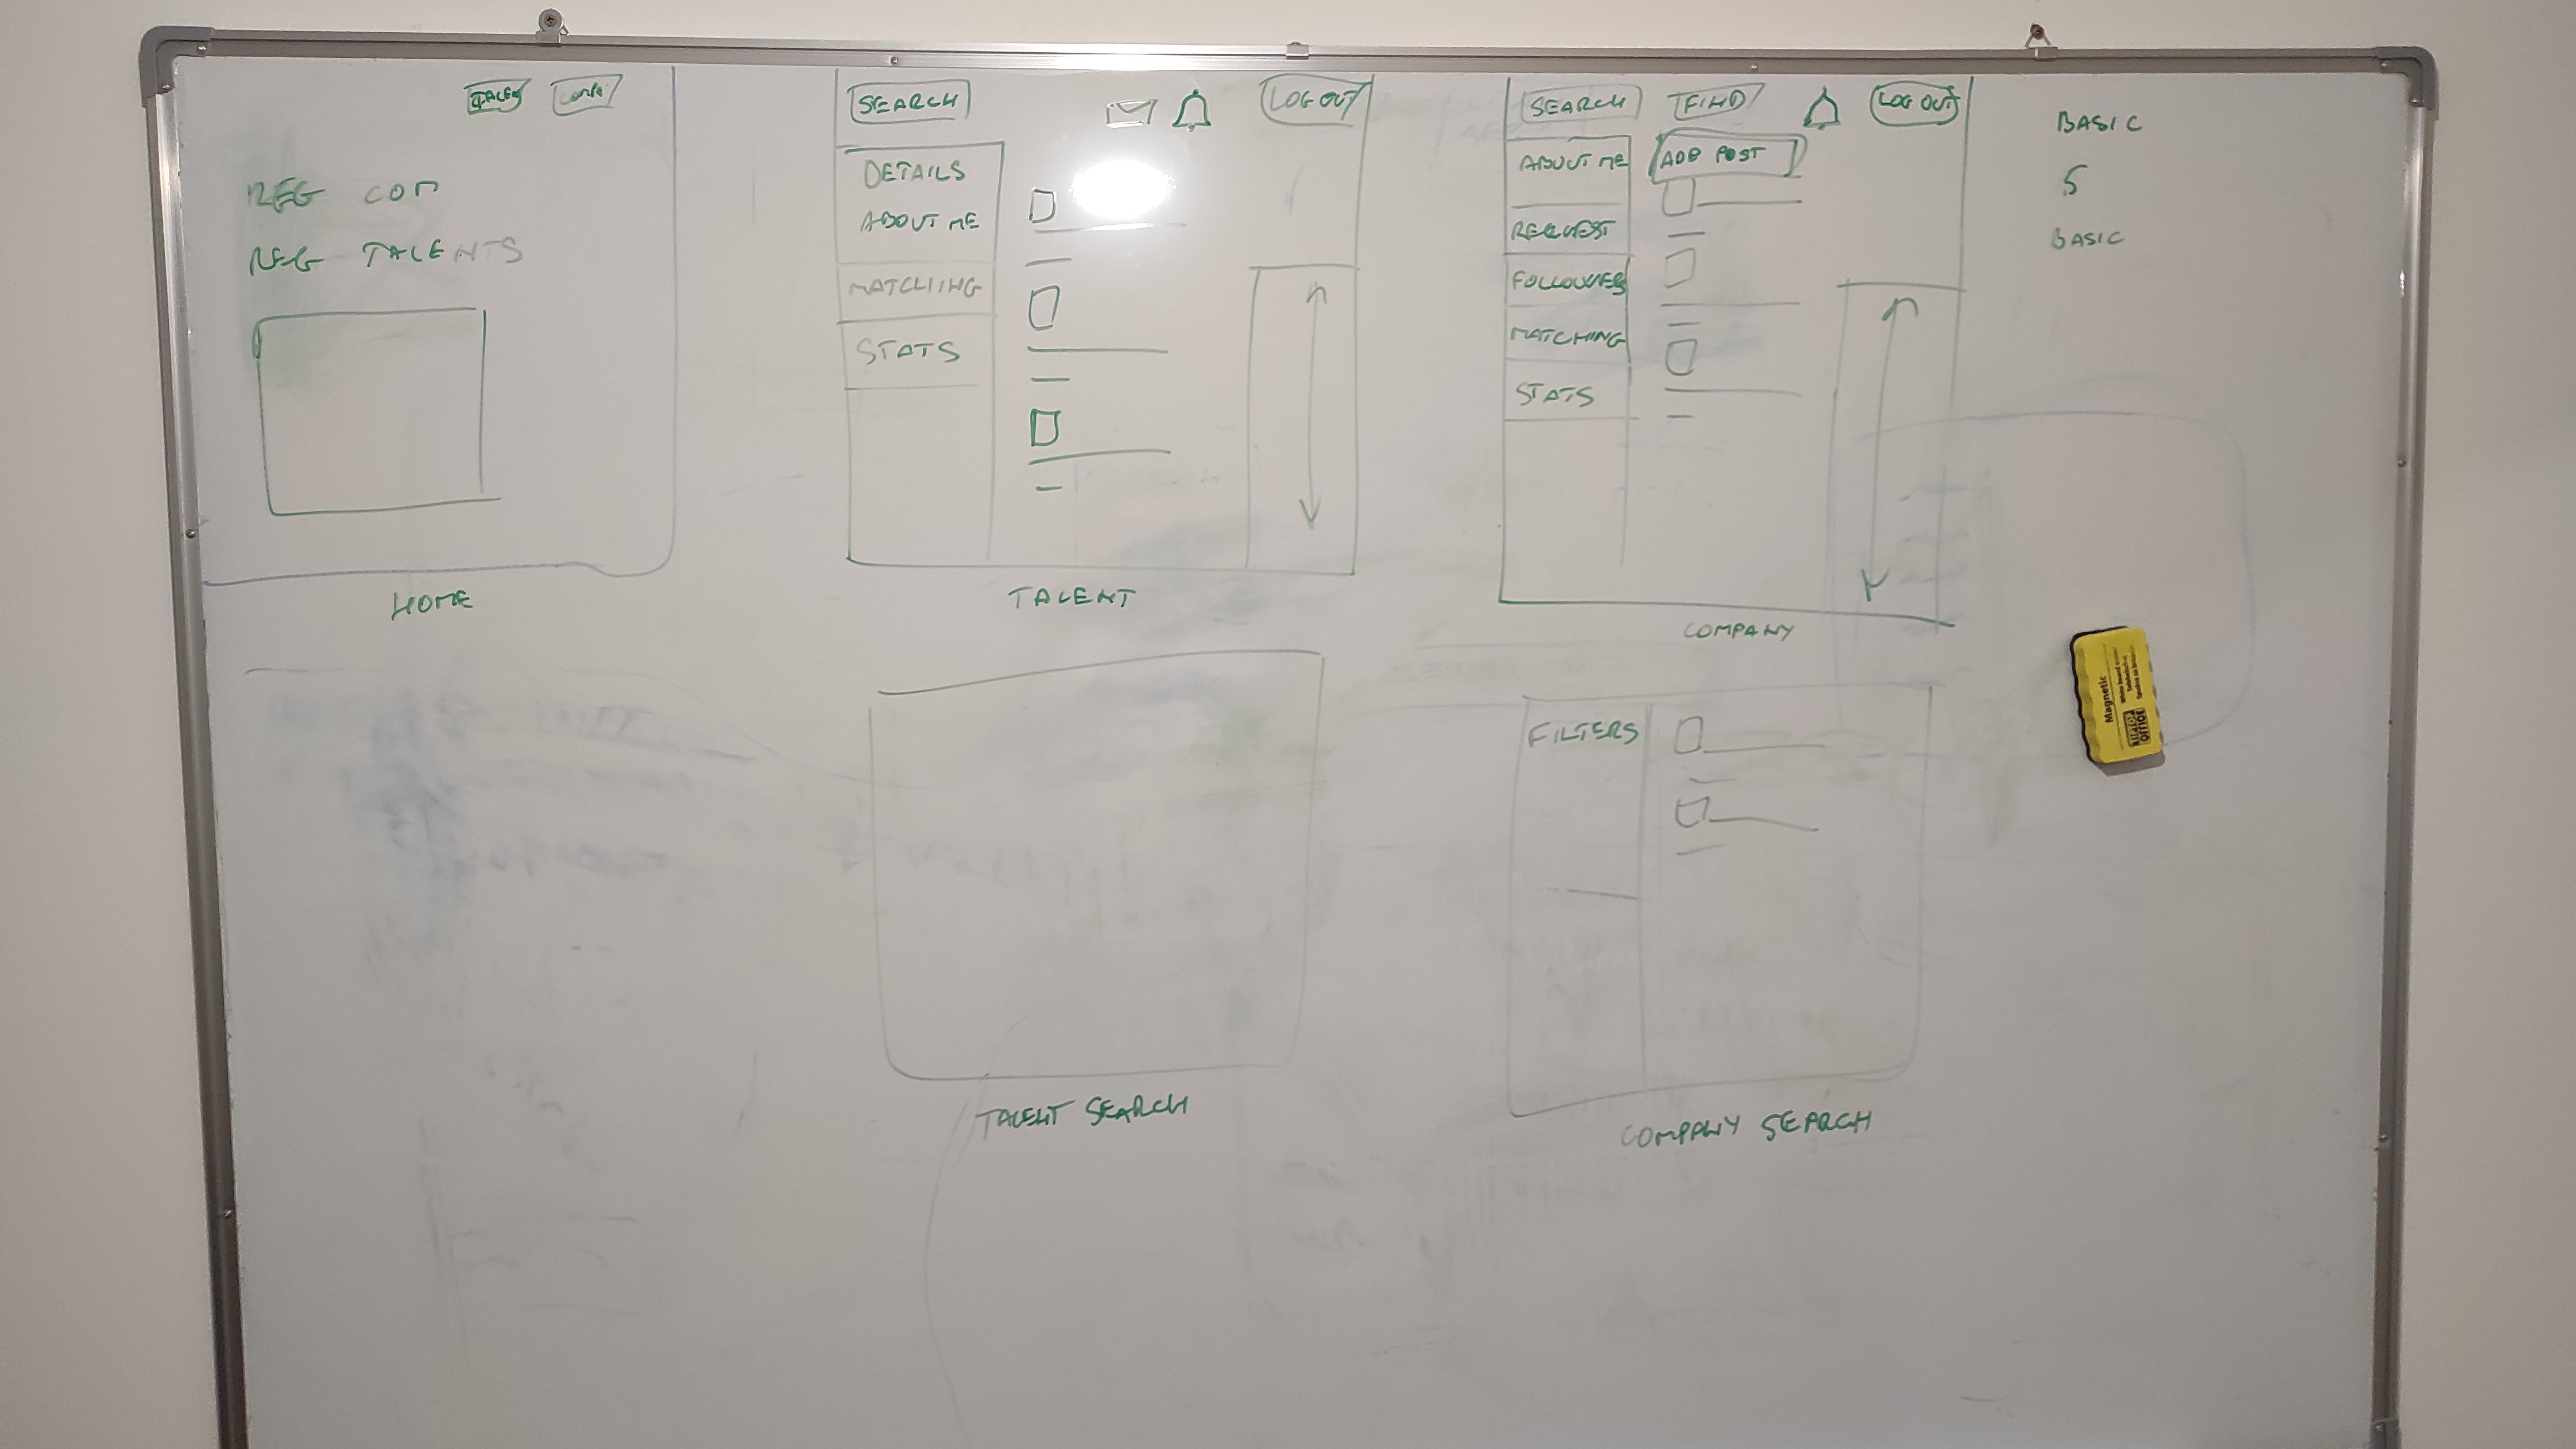 TALENT
REG COM
REG TALENTS
HOME
SEARCH
LOG OUT
DETAILS
ABOUT ME
MATCHING
STATS
TALENT
SEARCH FIND LOG OUT
ABOUT ME
ADD POST
REQUEST
FOLLOWERS
MATCHING
STATS
COMPANY
BASIC
5
BASIC
TALENT SEARCH
FILTERS
COMPANY SEARCH
Magnetic